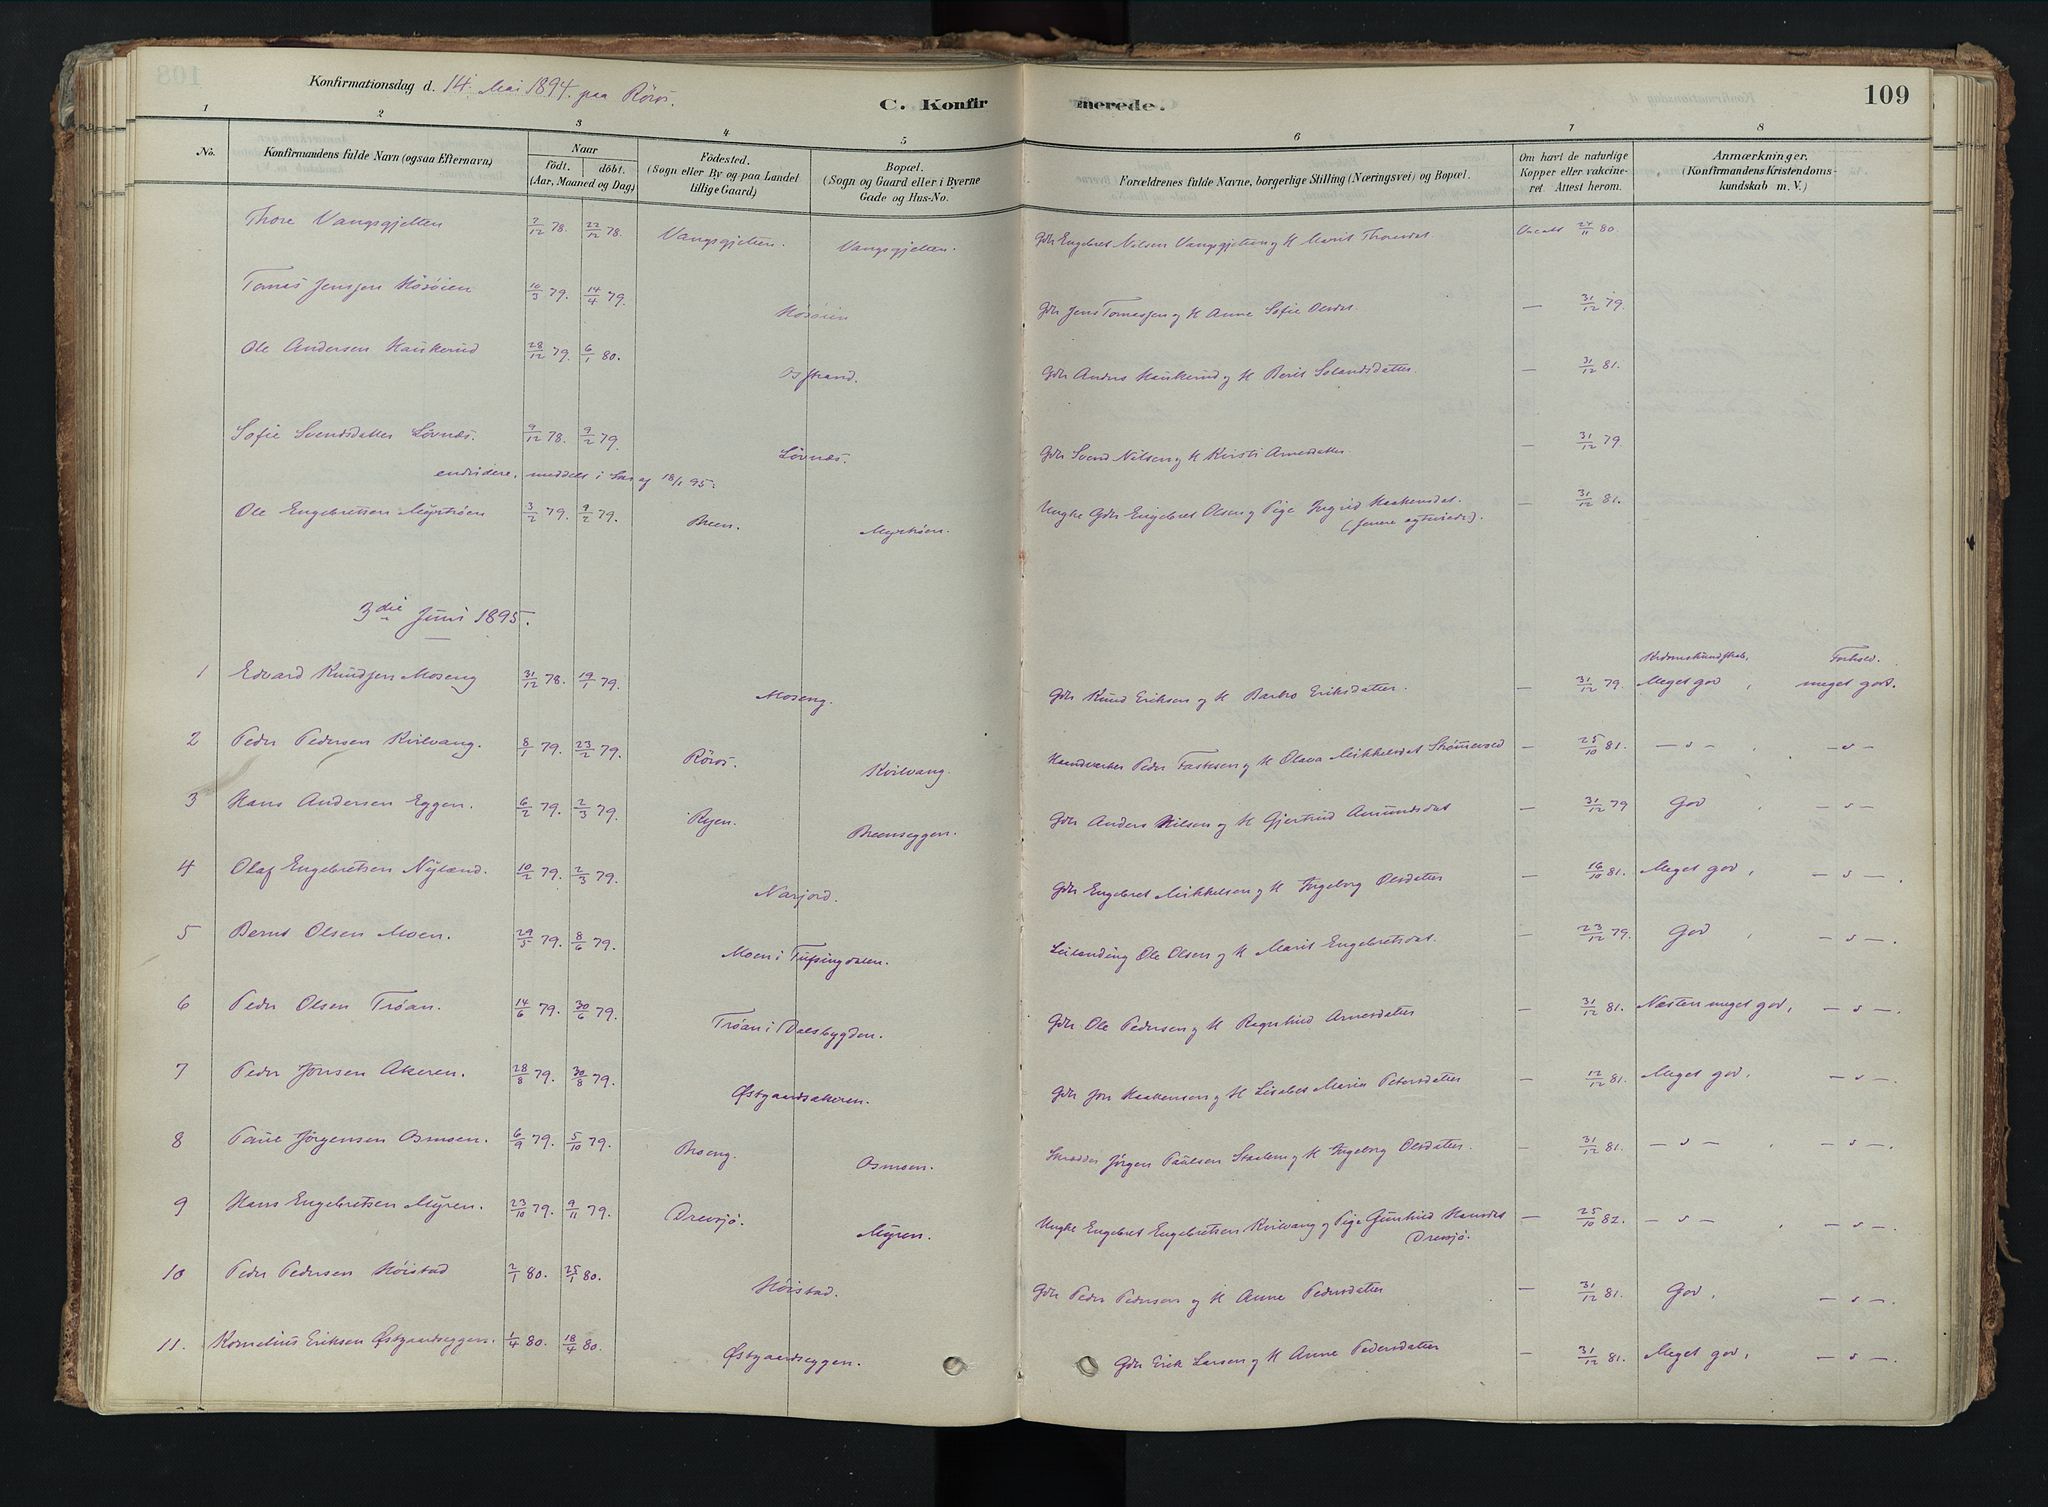 Konfirmationsdag d. 14. Mai 1894 paa Röros.
C. Konfirmerede.
109
1 2 3 4 5 6 7 8
No.
Konfirmandens fulde Navn (ogsaa Efternavn)
Naar
födt. döbt.
(Aar, Maaned og Dag)
Födested.
(Sogn eller By og paa Landet
tillige Gaard)
Bopæl.
(Sogn og Gaard eller i Byerne
Gade og Hus-No.
Forældrenes fulde Navne, borgerlige Stilling (Næringsvei) og Bopæl.
Om havt de naturlige
Kopper eller vakcine-
ret. Attest herom.
Anmærkninger.
(Konfirmandens Kristendoms-
kundskab m. V.)
Thore Vangsgjelten 2/12 78. 22/12 78. Vangsgjelten. Vangsgjelten. Gdr Engebret Nilsen Vangsgjelten og H Marit Thoresdat. 24/11 80.
Tomas Jensen Hösöien 10/3 79. 14/4 79. Hösöien Gdr Jens Tomassen og H Anne Sofie Olsdat. — 31/12 79.
Ole Andersen Haukerud 28/12 79. 6/1 80. Osstrand. Gdr Anders Haukerud og H Berit Solandsdatter. — 31/12 81.
Sofie Svendsdatter Lövnæs. 9/12 78. 9/2 79. Lövnæs. Gdr Svend Nilsen og H Kirsti Arnesdatter. — 31/12 79.
meddelt i 18/1 95.
Ole Engebretsen Myrhöen 3/2 79. 9/2 79. Breen. Myrhöen. Ungke Gdr Engebret Olsen og Pige Ingrid Haakensdat. — 31/12 81.
(senere egteviede).
3die Juni 1895.
Kr.domskundskab, Forhold.
1 Edvard Knudsen Moseng 31/12 78. 19/1 79. Moseng. Gdr Knud Eriksen og H Barbo Eriksdatter. — 31/12 79. Meget god, meget godt.
2 Peder Pedersen Kvilvang. 8/1 79. 23/2 79. Röros. Kvilvang. Haandverker Peder og H Olava Mikkelsdat Strömevold — 25/10 81. — s — , — s —
3 Hans Andersen Eggen. 6/2 79. 2/3 79. Ryen. Breenseggen. Gdr Anders Nilsen og H Gjertrud Amundsdat — 31/12 79 God , — s —
4 Olaf Engebretsen Nyland. 10/2 79. 2/3 79. Narjord. Gdr Engebret Mikkelsen og H Ingeborg Olsdatter — 16/10 81. Meget god, — s — .
5 Bernt Olsen Moen. 29/5 79. 8/6 79. Moen i Tufsingdalen. Leilending Ole Olsen og H Marit Engebretsdat. — 23/12 79. God , — s — .
6 Peder Olsen Tröan. 14/6 79. 30/6 79. Tröan i Dalsbygden. Gdr Ole Pedersen og H Ragnhild Arnesdatter — 31/12 81. Næsten meget god, — s — .
7 Peder Jonsen Akeren. 28/8 79. 30/8 79. Østgaardsakeren. Gdr Jon Haakensen og H Lisabet Maria Petersdatter — 12/12 81. Meget god, — s — .
8 Paul Jörgensen Osmoen. 6/9 79. 5/10 79. Broeng. Osmoen. Skrædder Jörgen Paulsen og H Ingeborg Olsdatter. — 31/12 81. — s — , — s — .
9 Hans Engebretsen Myren. 23/10 79. 9/11 79. Drevsjö. Myren. Ungke Engebret Engebretsen Kvilvang og Pige Gunhild Hansdat — 25/10 82. — s — , — s — .
Drevsjö.
10 Peder Pedersen Höistad 2/1 80. 25/1 80. Höistad. Gdr Peder Pedersen og H Anne Pedersdatter — 31/12 81. God, — s — .
11. Kornelius Eriksen Østgaardseggen. 1/4 80. 18/4 80. Østgaardseggen. Gdr Erik Larsen og H Anne Pedersdatter — 31/12 81. Meget god, — s — .